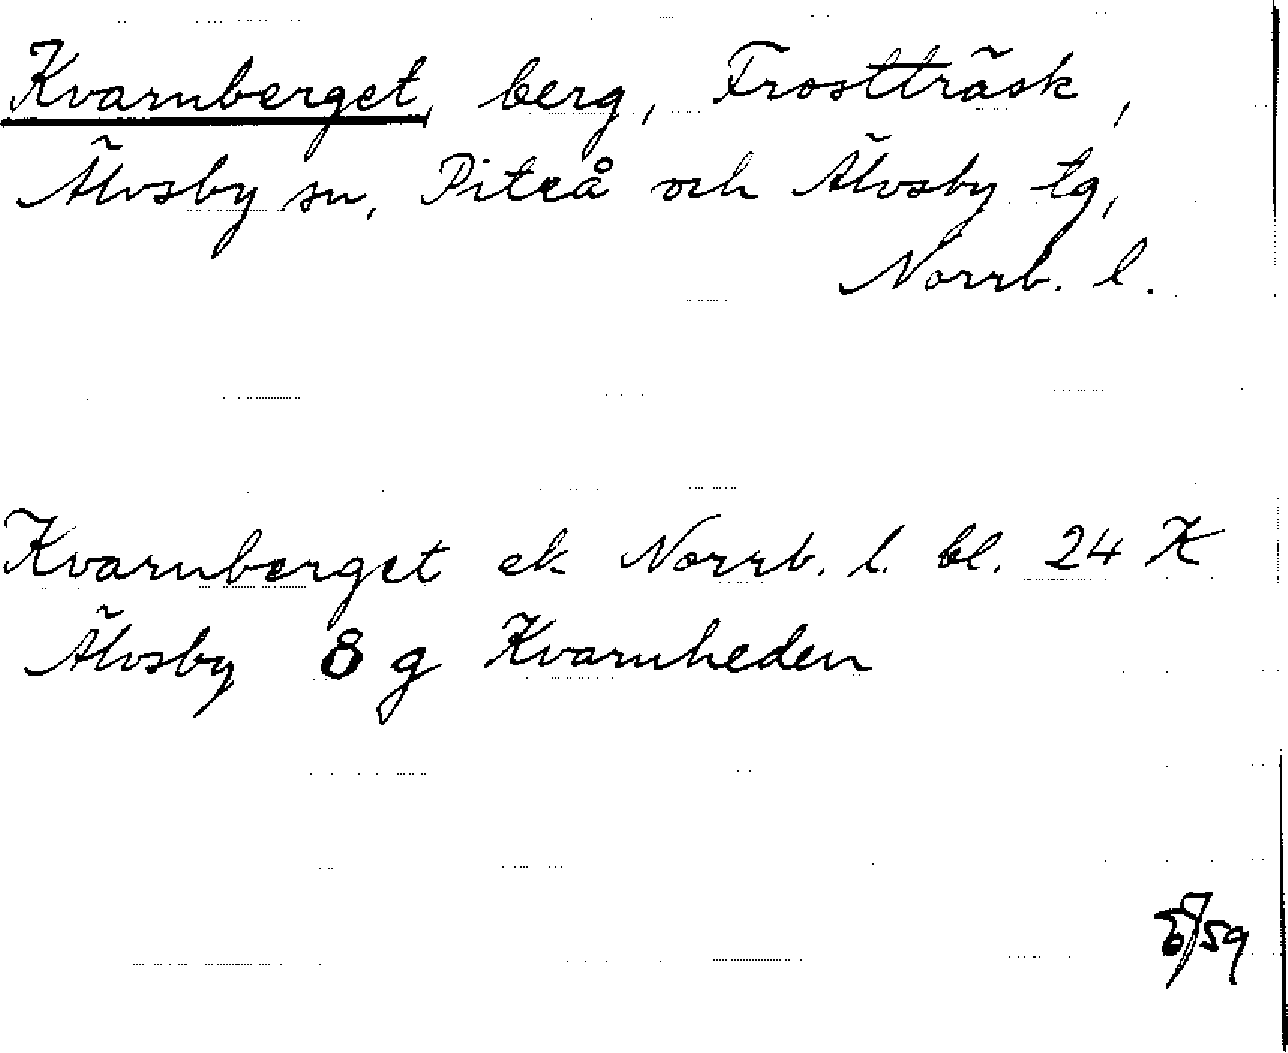 Kvarnberget, berg, Frostträsk,
Älvsby sn, Piteå och Älvsby tg,
Norrb. l.
Kvarnberget ek Norrb. l. bl. 24 K
Älvsby 8 g Kvarnheden